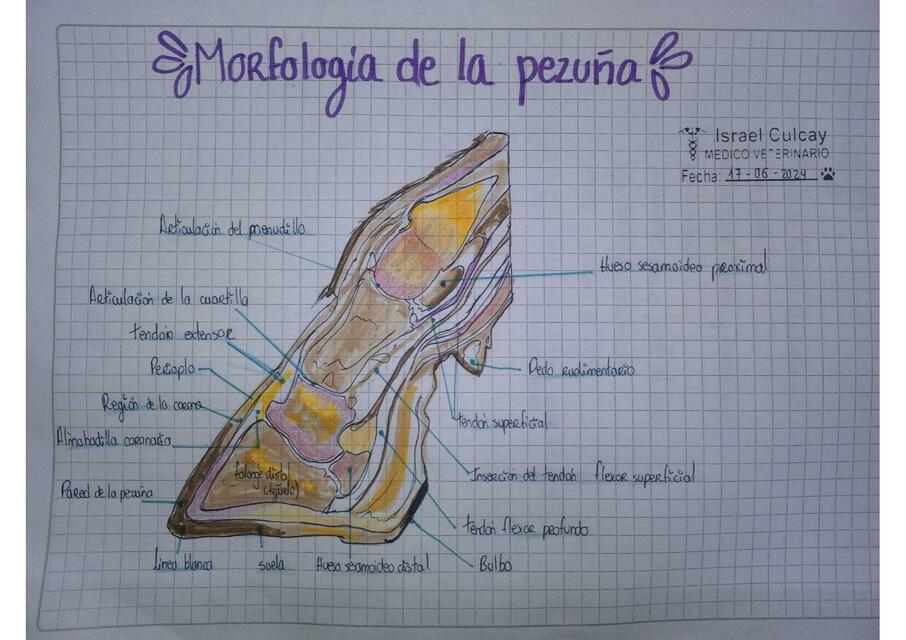 Morfología de la pezuña
Israel Culcay
MEDICO VETERINARIO
Fecha: 17-06-2024
Articulación del menudillo
Hueso sesamoideo proximal
Articulación de la cuartilla
tendón extensor
Perioplo
Dedo rudimentario
Región de la corona
tendón superficial
Almohadilla coronaria
falange distal
(tejuelo)
Inserción del tendón flexor superficial
Pared de la pezuña
tendón flexor profundo
Linea blanca
suela
Hueso sesamoideo distal
Bulbo